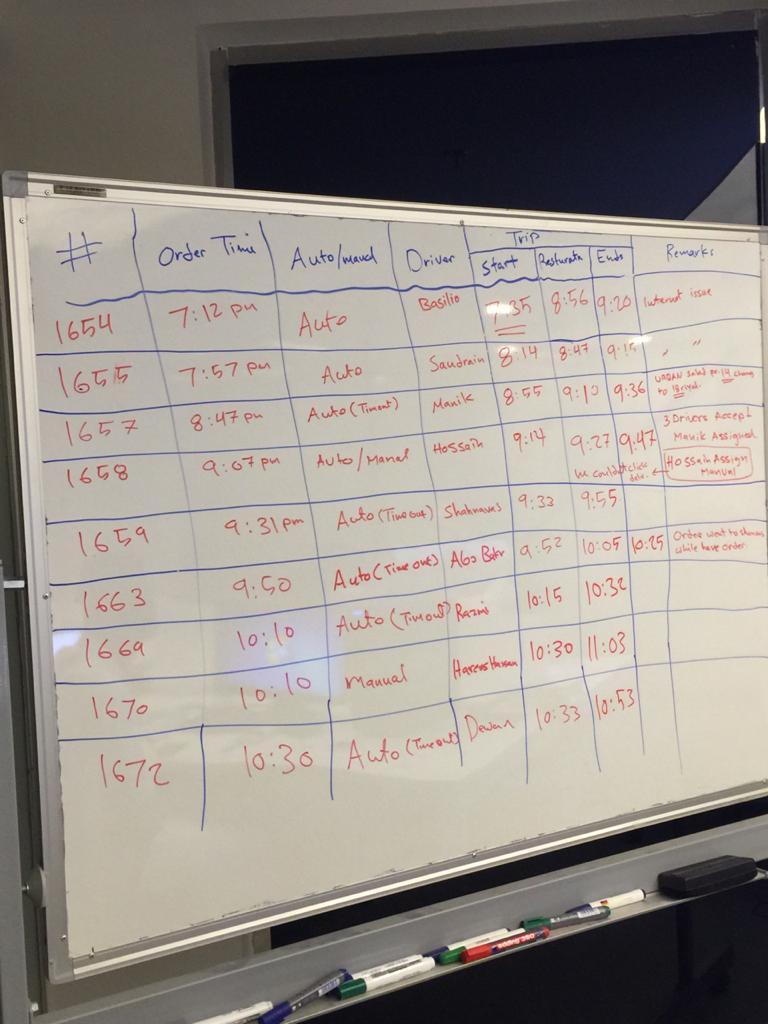 Trip
# Order Time Auto/manul Driver Start Resturatn Ends Remarks
1654 7:12 pm Auto Basilio 7:35 8:56 9:20 Internet issue
1655 7:57 pm Auto Saudrain 8:14 8:47 9:15 " "
1657 8:47 pm Auto (Timout) Manik 8:55 9:10 9:36 URBAN Salad pr. 14 change
to 18 riyal.
1658 9:07 pm Auto/Manal Hossain 9:14 9:27 9:47 3 Drivers Accept
Manik Assigned
We couldn't click
dele. ← Hossain Assign
Manual
1659 9:31 pm Auto (Time out) Shahnawas 9:33 9:55
1663 9:50 Auto (Time out) Abo Bakr 9:52 10:05 10:25 Order went to
while have order.
1669 10:10 Auto (Timout) Razmi 10:15 10:32
1670 10:10 Manual Hares Hassan 10:30 11:03
1672 10:30 Auto (Timeout) Dewan 10:33 10:53